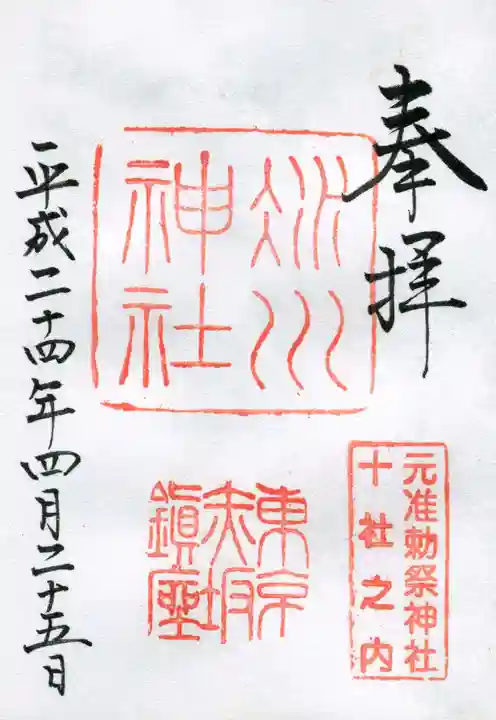 奉拝
氷川
神社
元准勅祭神社
十社之内
東京
赤坂
鎮座
平成二十四年四月二十五日